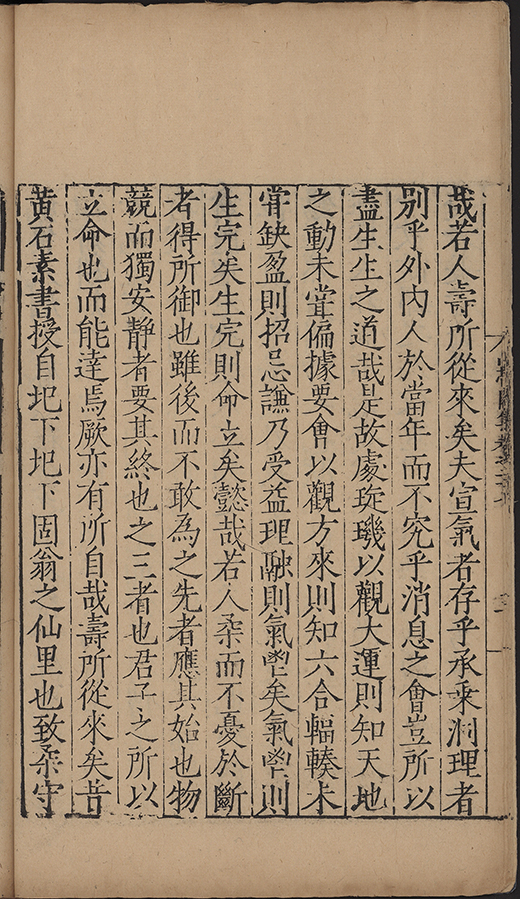 哉若人壽所從來矣夫宣氣者存乎承乘洞理者
別乎外內人於當年而不究乎消息之會豈所以
盡生生之道哉是故處琁璣以觀大運則知天地
之動未甞偏據要會以觀方來則知六合輻輳未
甞缺盈則招忌謙乃受益理融則氣豐矣氣豐則
生完矣生完則命立矣懿哉若人柔而不憂於斷
者得所御也雖後而不敢為之先者應其始也物
競而獨安靜者要其終也之三者也君子之所以
立命也而能達焉厥亦有所自哉壽所從來矣昔
黃石素書授自圯下圯下固翁之仙里也致柔守